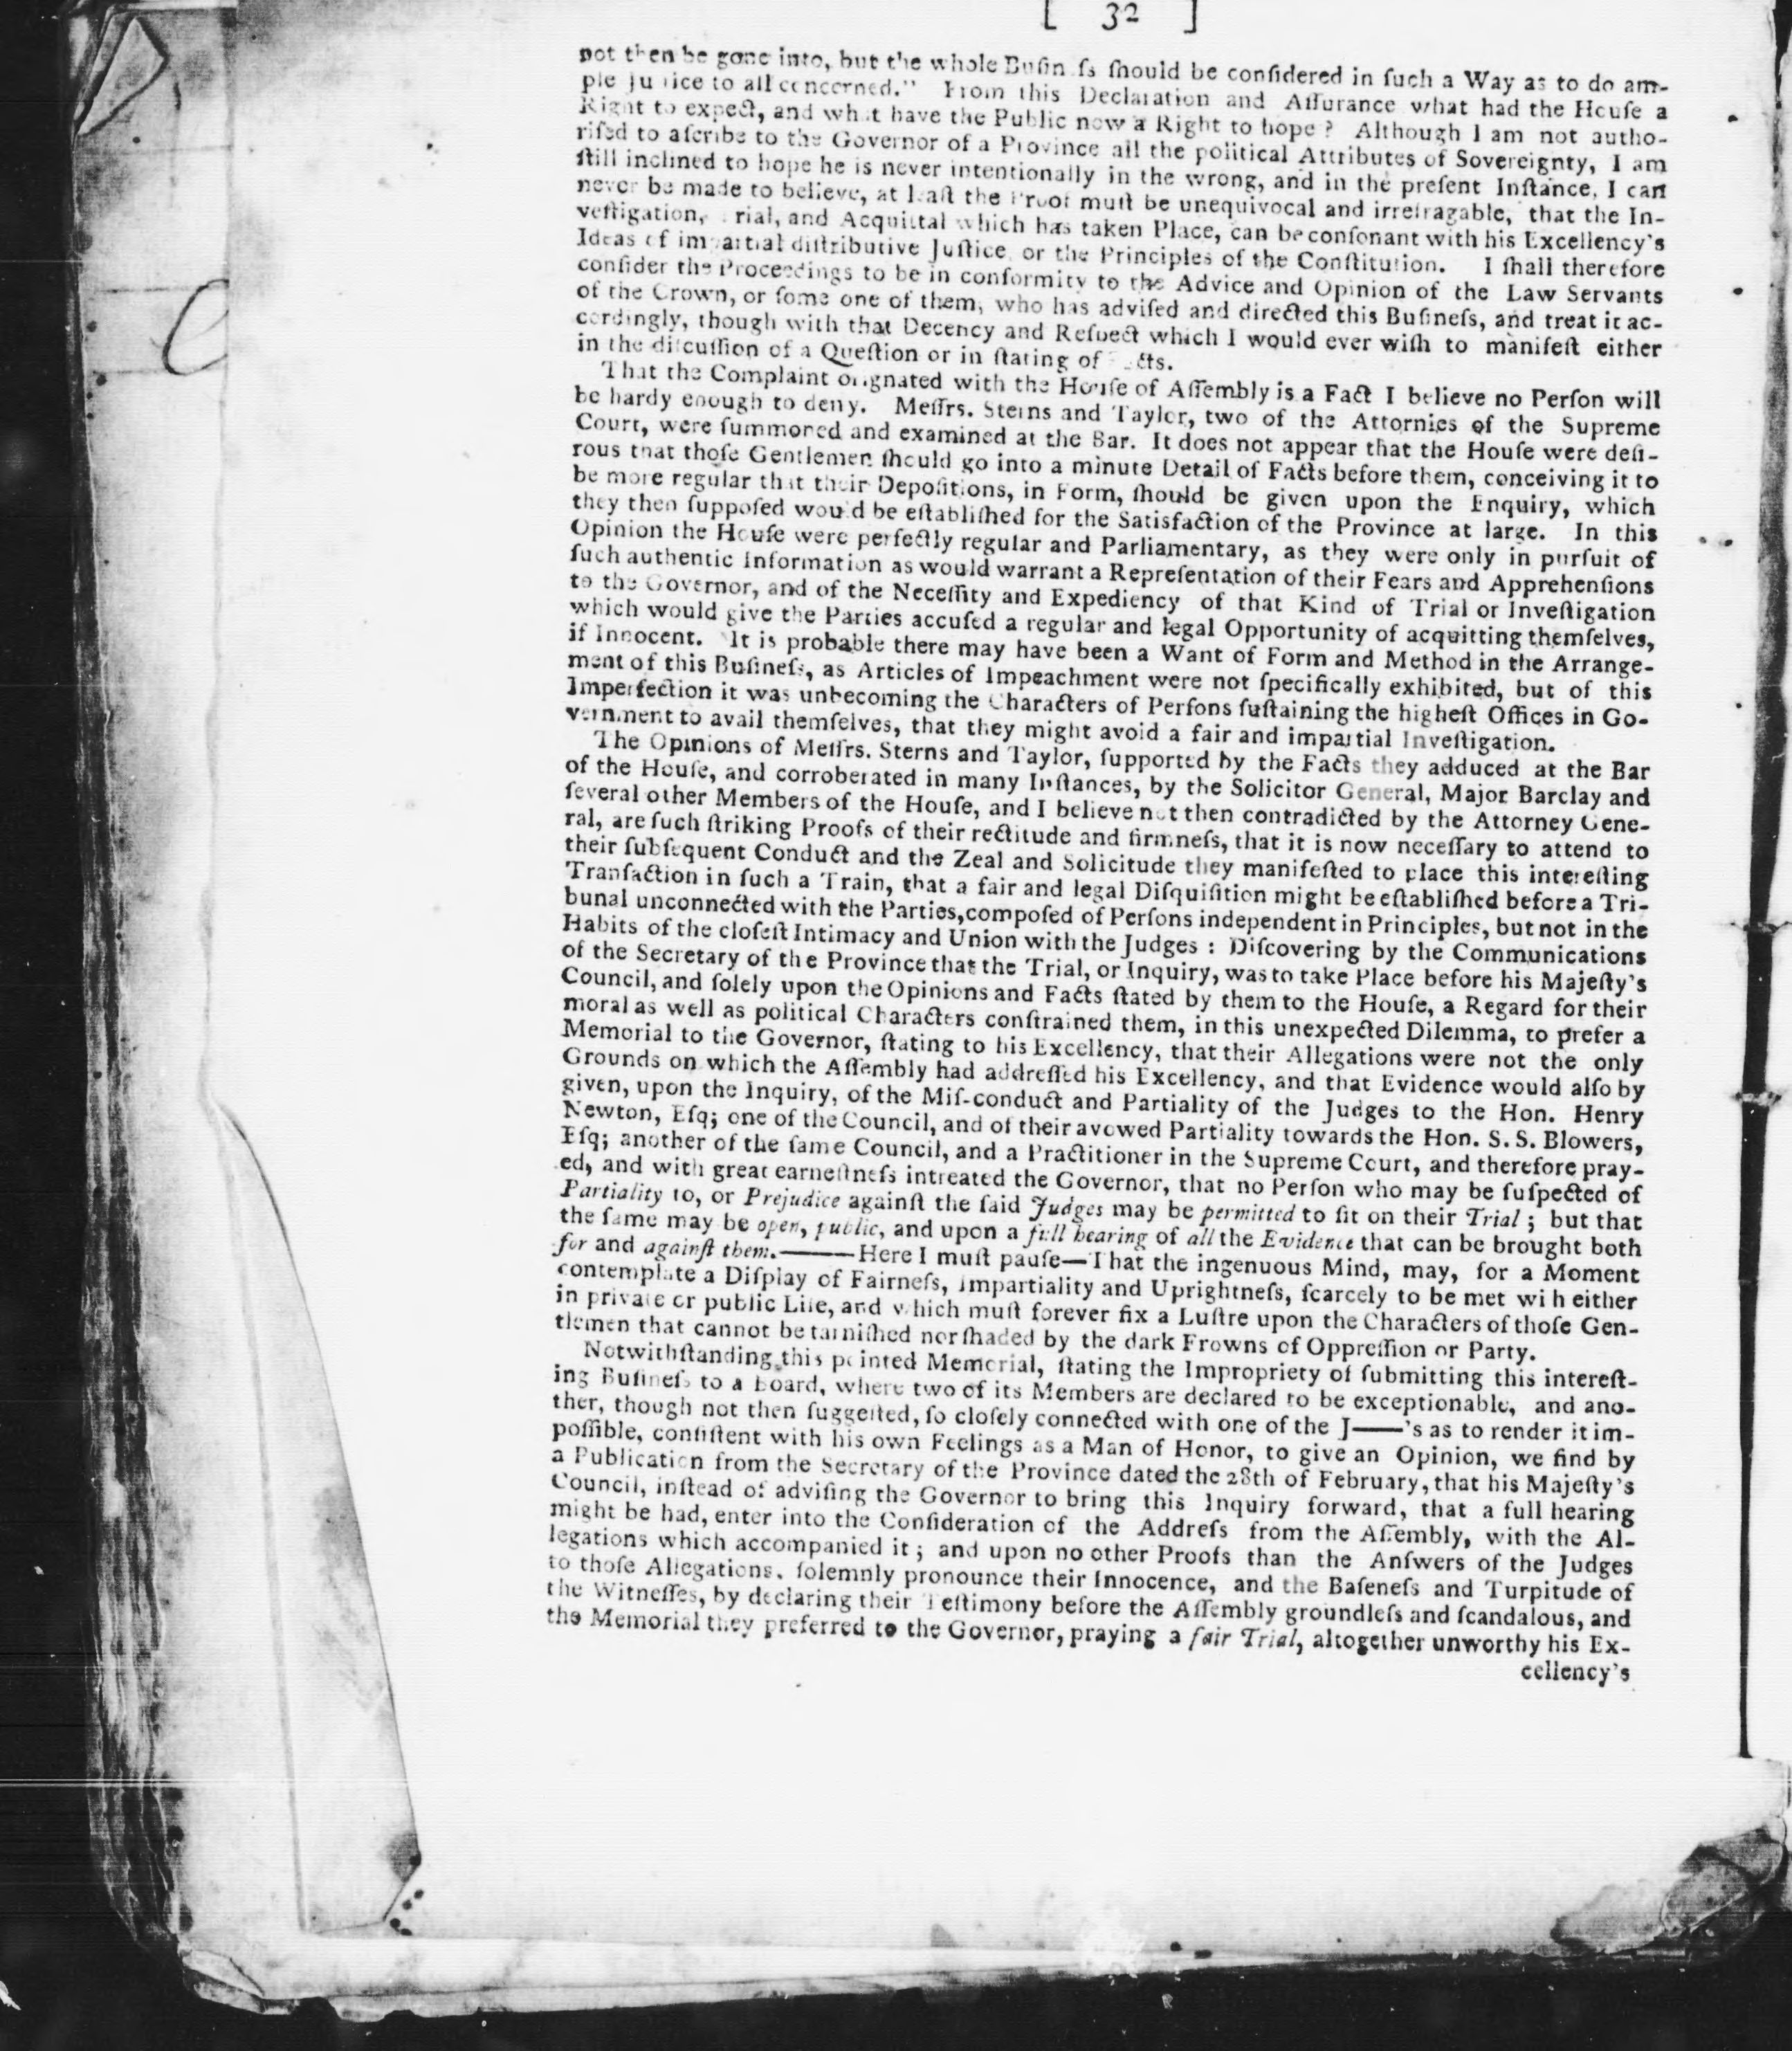 [ 32 ]
not then be gone into, but the whole Busin ss ſhould be conſidered in ſuch a Way as to do am-
ple Ju ice to all concerned." From this Declaration and Aſſurance what had the Houſe a
Right to expect, and what have the Public now a Right to hope ? Although I am not autho-
riſed to aſcribe to the Governor of a Province all the political Attributes of Sovereignty, I am
ſtill inclined to hope he is never intentionally in the wrong, and in the preſent Inſtance, I can
never be made to believe, at leaſt the Proof muſt be unequivocal and irrefragable, that the In-
veſtigation, rial, and Acquittal which has taken Place, can be conſonant with his Excellency's
Ideas of impartial diſtributive Juſtice, or the Principles of the Conſtitution. I ſhall therefore
conſider the Proceedings to be in conformity to the Advice and Opinion of the Law Servants
of the Crown, or ſome one of them, who has adviſed and directed this Buſineſs, and treat it ac-
cordingly, though with that Decency and Reſpect which I would ever wiſh to manifeſt either
in the diſcuſſion of a Queſtion or in ſtating of cts.
That the Complaint orignated with the Houſe of Aſſembly is a Fact I believe no Perſon will
be hardy enough to deny. Meſſrs. Sterns and Taylor, two of the Attornies of the Supreme
Court, were ſummoned and examined at the Bar. It does not appear that the Houſe were deſi-
rous that thoſe Gentlemen ſhould go into a minute Detail of Facts before them, conceiving it to
be more regular that their Depoſitions, in Form, ſhould be given upon the Enquiry, which
they then ſuppoſed would be eſtabliſhed for the Satisfaction of the Province at large. In this
Opinion the Houſe were perfectly regular and Parliamentary, as they were only in purſuit of
ſuch authentic Information as would warrant a Repreſentation of their Fears and Apprehenſions
to the Governor, and of the Neceſſity and Expediency of that Kind of Trial or Inveſtigation
which would give the Parties accuſed a regular and legal Opportunity of acquitting themſelves,
if Innocent. It is probable there may have been a Want of Form and Method in the Arrange-
ment of this Buſineſs, as Articles of Impeachment were not ſpecifically exhibited, but of this
Imperfection it was unbecoming the Characters of Perſons ſuſtaining the higheſt Offices in Go-
vernment to avail themſelves, that they might avoid a fair and impartial Inveſtigation.
The Opinions of Meſſrs. Sterns and Taylor, ſupported by the Facts they adduced at the Bar
of the Houſe, and corroberated in many Inſtances, by the Solicitor General, Major Barclay and
ſeveral other Members of the Houſe, and I believe not then contradicted by the Attorney Gene-
ral, are ſuch ſtriking Proofs of their rectitude and firmneſs, that it is now neceſſary to attend to
their ſubſequent Conduct and the Zeal and Solicitude they manifeſted to place this intereſting
Tranſaction in ſuch a Train, that a fair and legal Diſquiſition might be eſtabliſhed before a Tri-
bunal unconnected with the Parties, compoſed of Perſons independent in Principles, but not in the
Habits of the cloſeſt Intimacy and Union with the Judges : Diſcovering by the Communications
of the Secretary of the Province that the Trial, or Inquiry, was to take Place before his Majeſty's
Council, and ſolely upon the Opinions and Facts ſtated by them to the Houſe, a Regard for their
moral as well as political Characters conſtrained them, in this unexpected Dilemma, to prefer a
Memorial to the Governor, ſtating to his Excellency, that their Allegations were not the only
Grounds on which the Aſſembly had addreſſed his Excellency, and that Evidence would alſo by
given, upon the Inquiry, of the Miſ-conduct and Partiality of the Judges to the Hon. Henry
Newton, Eſq; one of the Council, and of their avowed Partiality towards the Hon. S. S. Blowers,
Eſq; another of the ſame Council, and a Practitioner in the Supreme Court, and therefore pray-
ed, and with great earneſtneſs intreated the Governor, that no Perſon who may be ſuſpected of
Partiality to, or Prejudice againſt the ſaid Judges may be permitted to ſit on their Trial ; but that
the ſame may be open, public, and upon a full hearing of all the Evidence that can be brought both
for and againſt them.———Here I muſt pauſe—That the ingenuous Mind, may, for a Moment
contemplate a Diſplay of Fairneſs, Impartiality and Uprightneſs, ſcarcely to be met wi h either
in private or public Life, and which muſt forever fix a Luſtre upon the Characters of thoſe Gen-
tlemen that cannot be tarniſhed nor ſhaded by the dark Frowns of Oppreſſion or Party.
Notwithſtanding this pointed Memorial, ſtating the Impropriety of ſubmitting this intereſt-
ing Buſineſs to a Board, where two of its Members are declared to be exceptionable, and ano-
ther, though not then ſuggeſted, ſo cloſely connected with one of the J——'s as to render it im-
poſſible, conſiſtent with his own Feelings as a Man of Honor, to give an Opinion, we find by
a Publication from the Secretary of the Province dated the 28th of February, that his Majeſty's
Council, inſtead of adviſing the Governor to bring this Inquiry forward, that a full hearing
might be had, enter into the Conſideration of the Addreſs from the Aſſembly, with the Al-
legations which accompanied it ; and upon no other Proofs than the Anſwers of the Judges
to thoſe Allegations, ſolemnly pronounce their Innocence, and the Baſeneſs and Turpitude of
the Witneſſes, by declaring their Teſtimony before the Aſſembly groundleſs and ſcandalous, and
the Memorial they preferred to the Governor, praying a fair Trial, altogether unworthy his Ex-
cellency's